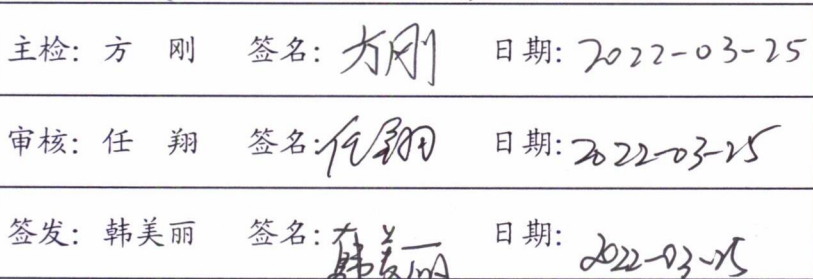 主检: 方 刚 签名: 方刚 日期: 2022-03-25
审核: 任 翔 签名: 任翔 日期: 2022-03-25
签发: 韩美丽 签名: 韩美丽 日期: 2022-03-25